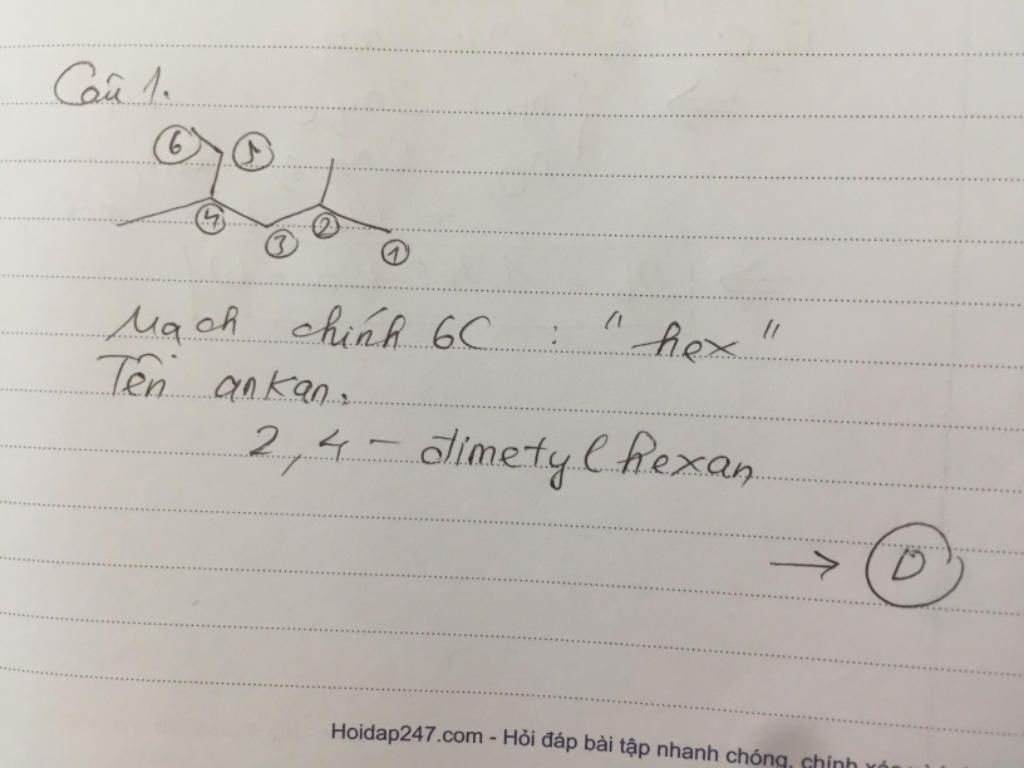 Câu 1.
6 5
4 2
3 1
Mạch chính 6C : "hex"
Tên ankan.
2,4 - đimetylhexan
→ D
Hoidap247.com - Hỏi đáp bài tập nhanh chóng, chính